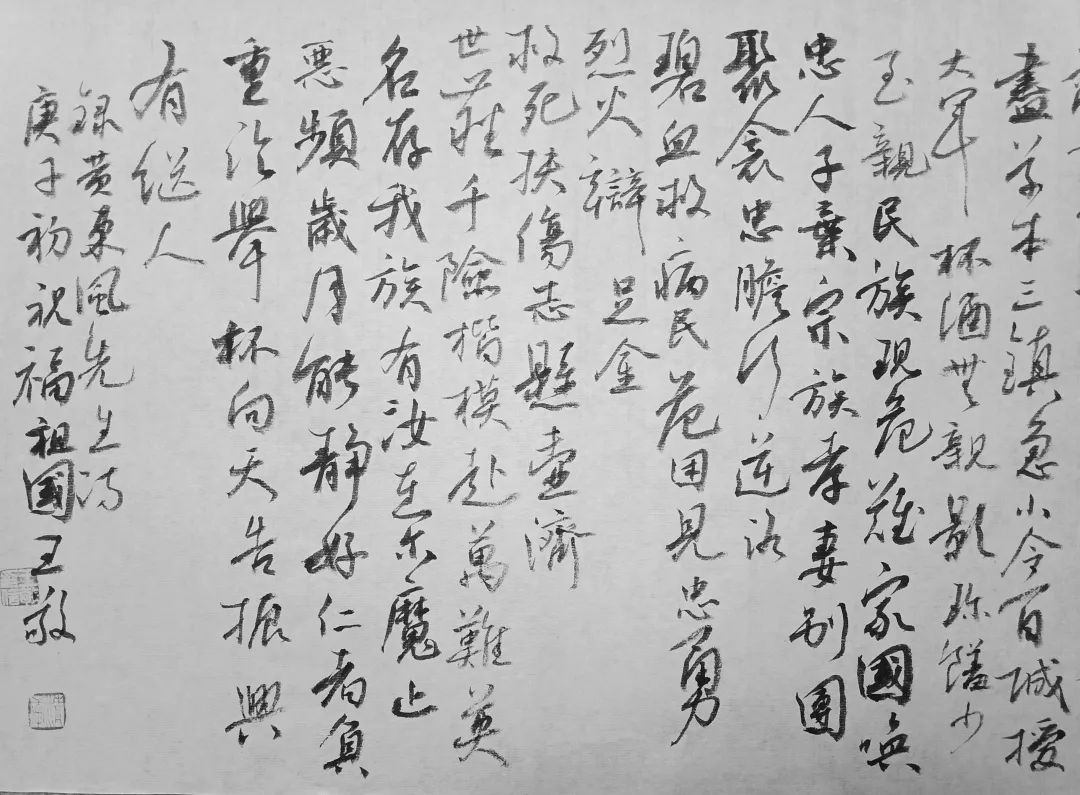 盡草本三鎮急小令百城援
大軍 杯酒無親影珍饈少
至親民族現危難家國喚
忠人子棄宗族孝妻別團
聚衾忠膽行逆流
碧血救病民危困見忠勇
烈火辯足金
救死扶傷志懸壺濟
世蒞千險楷模赴萬難英
名存我族有汝在尔魔止
惡頻歲月能靜好仁者負
重汵舉杯向天告振興
有繼人
録黃東風先生詩
庚子初祝福祖國王敬